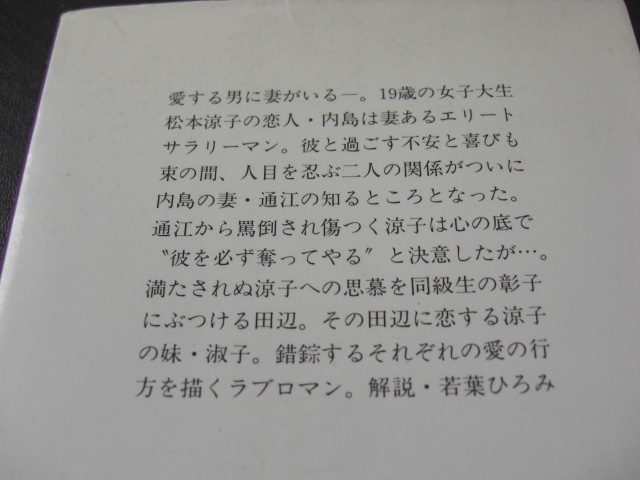 愛する男に妻がいる―。19歳の女子大生
松本涼子の恋人・内島は妻あるエリート
サラリーマン。彼と過ごす不安と喜びも
束の間、人目を忍ぶ二人の関係がついに
内島の妻・通江の知るところとなった。
通江から罵倒され傷つく涼子は心の底で
〝彼を必ず奪ってやる〟と決意したが…。
満たされぬ涼子への思慕を同級生の彰子
にぶつける田辺。その田辺に恋する涼子
の妹・淑子。錯綜するそれぞれの愛の行
方を描くラブロマン。解説・若葉ひろみ